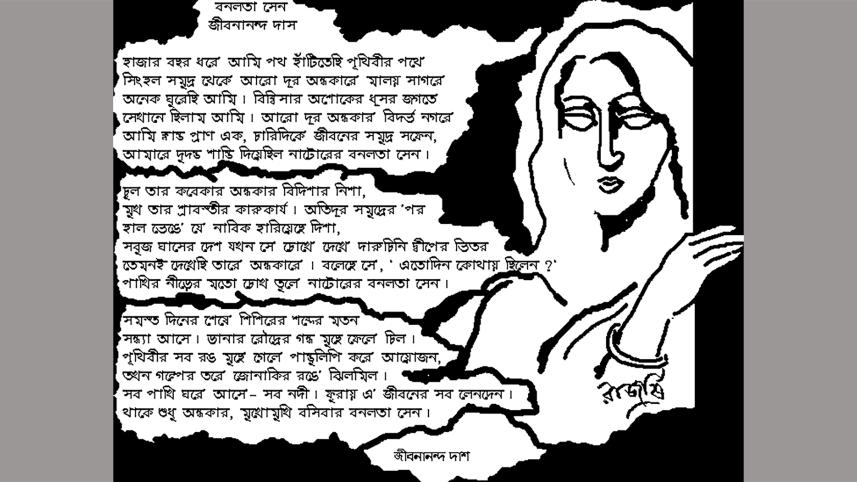 বনলতা সেন
জীবনানন্দ দাস
হাজার বছর ধরে' আমি পথ হাঁটিতেছি পৃথিবীর পথে'
সিংহল সমুদ্র থেকে' আরো দূর অন্ধকারে' মালয় সাগরে'
অনেক ঘুরেছি আমি। বিম্বিসার অশোকের ধূসর জগতে
সেখানে ছিলাম আমি। আরো দূর অন্ধকার' বিদর্ভ নগরে'
আমি ক্লান্ত প্রাণ এক, চারিদিকে' জীবনের সমুদ্র সফেন,
আমারে দুদন্ড শান্তি দিয়েছিল নাটোরের বনলতা সেন।
চুল তার কবেকার অন্ধকার বিদিশার নিশা,
মুখ তার শ্রাবস্তীর কারুকার্য। অতিদূর সমুদ্রের 'পর
হাল ভেঙে' যে' নাবিক হারিয়েছে দিশা,
সবুজ ঘাসের দেশ যখন সে' চোখে' দেখে' দারুচিনি দ্বীপের ভিতর
তেমনই দেখেছি তারে' অন্ধকারে'। বলেছে সে', ' এতোদিন কোথায় ছিলেন ?'
পাখির নীড়ের মতো চোখ তুলে' নাটোরের বনলতা সেন।
সমস্ত দিনের শেষে' শিশিরের শব্দের মতন
সন্ধ্যা আসে। ডানার রৌদ্রের গন্ধ মুছে ফেলে চিল।
পৃথিবীর সব রঙ মুছে গেলে পান্ডুলিপি করে' আয়োজন,
তখন গল্পের তরে' জোনাকির রঙে' ঝিলমিল।
সব পাখি ঘরে' আসে'- সব নদী। ফুরায় এ' জীবনের সব লেনদেন।
থাকে শুধু অন্ধকার, মুখোমুখি বসিবার বনলতা সেন।
রাজর্ষি
জীবনানন্দ দাশ